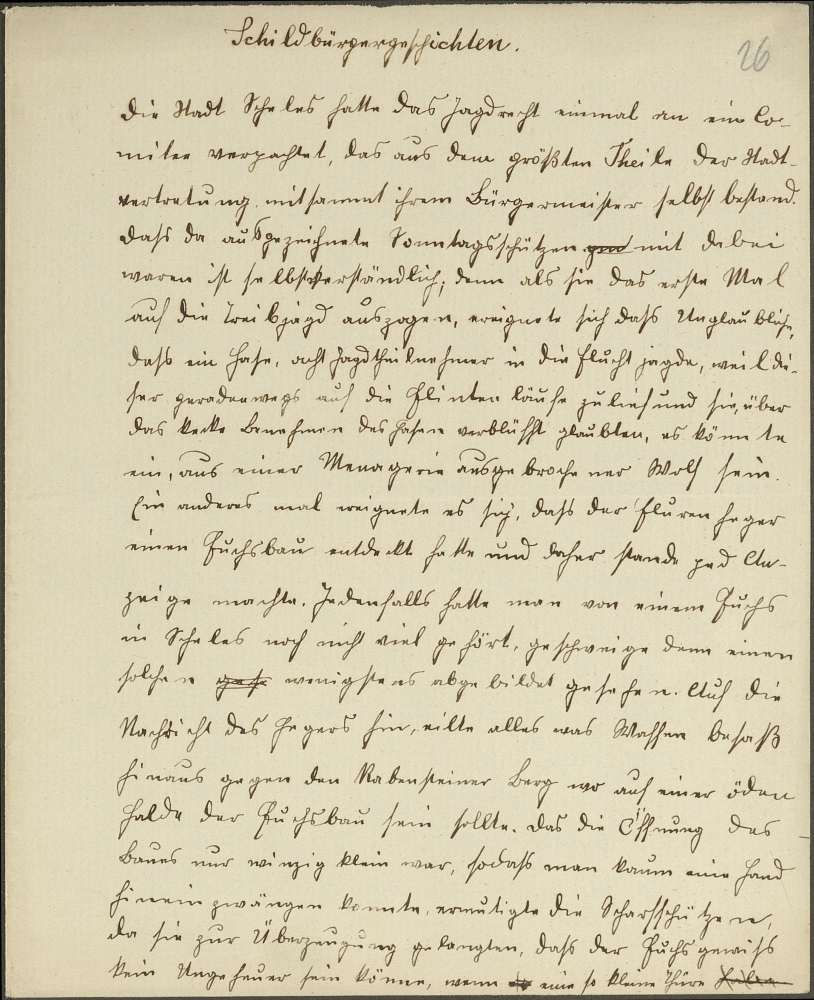 Schildbürgergeschichten.
26
Die Stadt Scheles hatte das Jagdrecht einmal an ein Co-
mitee verpachtet, das aus dem größten Theile der Stadt-
vertretung mitsammt ihrem Bürgermeister selbst bestand.
Dass da ausgezeichnete Sonntagsschützen mit dabei
waren ist selbstverständlich; denn als sie das erste Mal
auf die Treibjagd auszogen, ereignete sich dass Unglaubliche,
dass ein Hase, acht Jagdtheilnehmer in die Flucht jagde, weil die-
ser geradenwegs auf die Flintenläufe zulief und sie, über
das kecke Benehmen des Hasen verblüfft glaubten, es könnte
ein, aus einer Menagerie ausgebrochener Wolf sein.
Ein anderes mal ereignete es sich, dass der Flurenheger
einen Fuchsbau entdeckt hatte und daher stande ped An-
zeige machte. Jedenfalls hatte man von einem Fuchs
in Scheles noch nicht viel gehört, geschweige denn einen
solchen wenigstens abgebildet gesehen. Auf die
Nachricht des Hegers hin, eilte alles was Waffen besaß
hinaus gegen den Rabensteiner Berg wo auf einer öden
Halde der Fuchsbau sein sollte. Das die Öffnung des
Baues nur winzig klein war, sodass man kaum eine Hand
hineinzwängen konnte, ermutigte die Scharfschützen,
da sie zur Überzeugung gelangten, dass der Fuchs gewiss
kein Ungeheuer sein könne, wenn eine so kleine Thüre